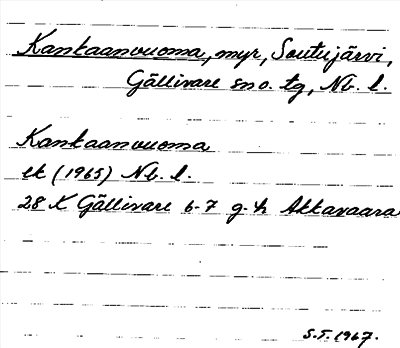 Kankaanvuoma, myr, Soutujärvi,
Gällivare sno. tg, Nb. l.
Kankaanvuoma
ek (1965) Nb. l.
28 K Gällivare 6-7 g-h Akkavaara
S.S. 1967.